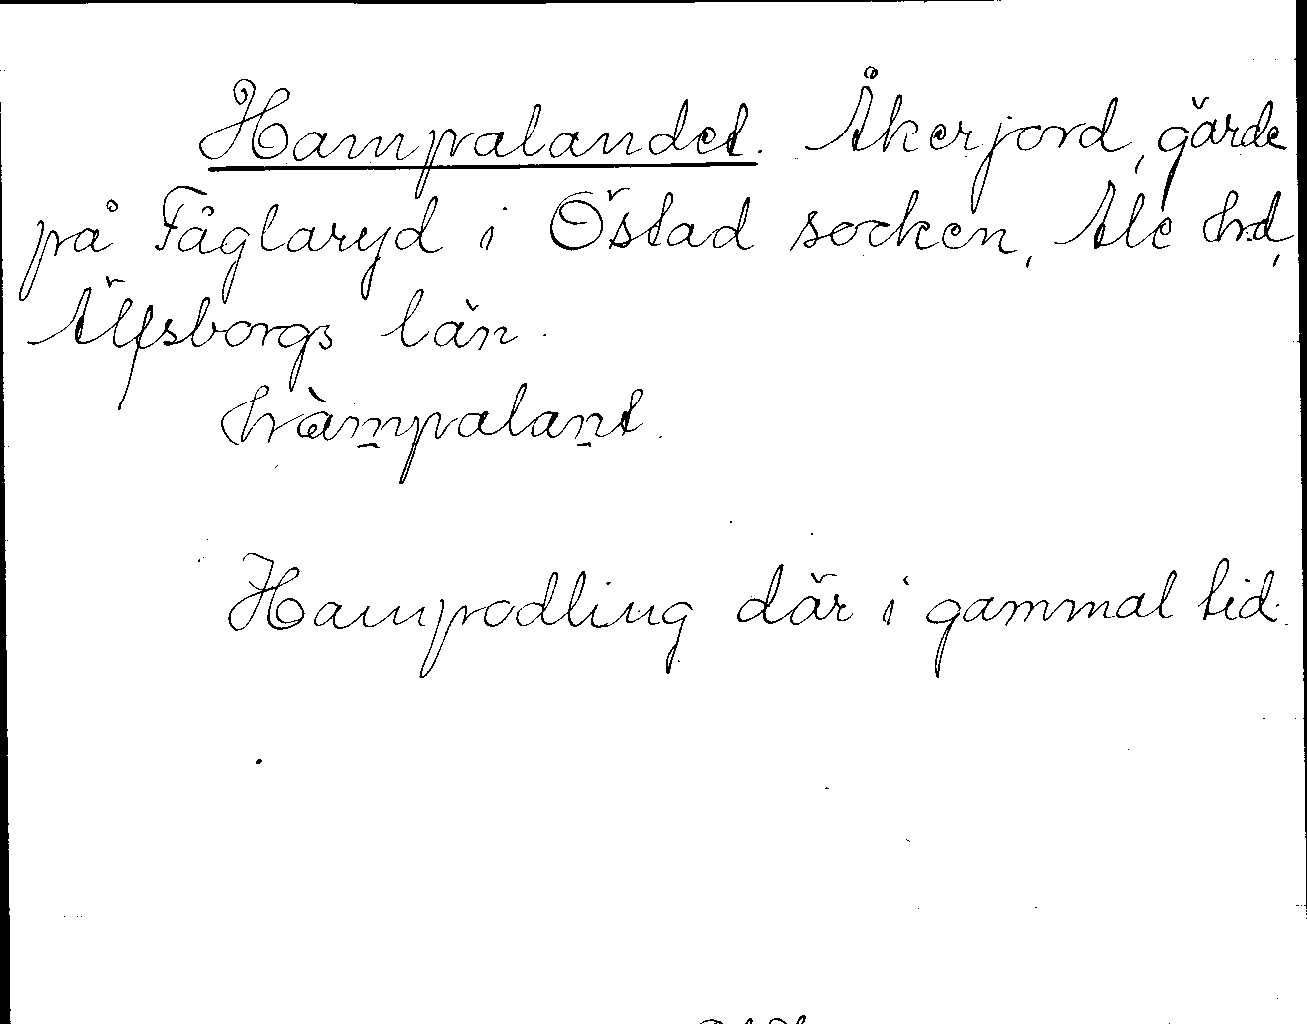 Hampalandet. Åkerjord, gärde
på Fåglaryd i Östad socken, Ale hd,
Älfsborgs län.
hàmpalant.
Hampodling där i gammal tid.